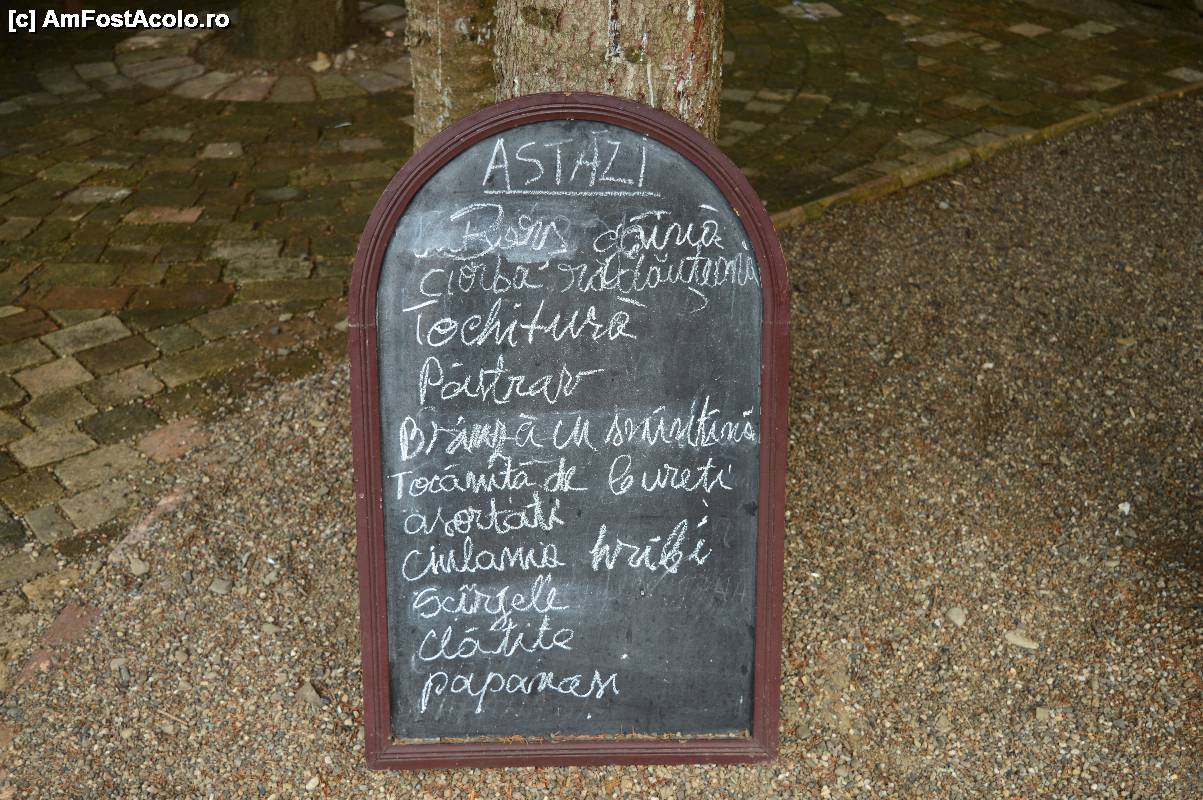 [c] AmFostAcolo.ro
ASTĂZI
Borș găină
Ciorbă rădăuțeană
Tochitură
Păstrav
Brânză cu smântînă
Tocăniță de bureți
asortați
Ciulama hribi
Scîrgele
Clătite
papanasi